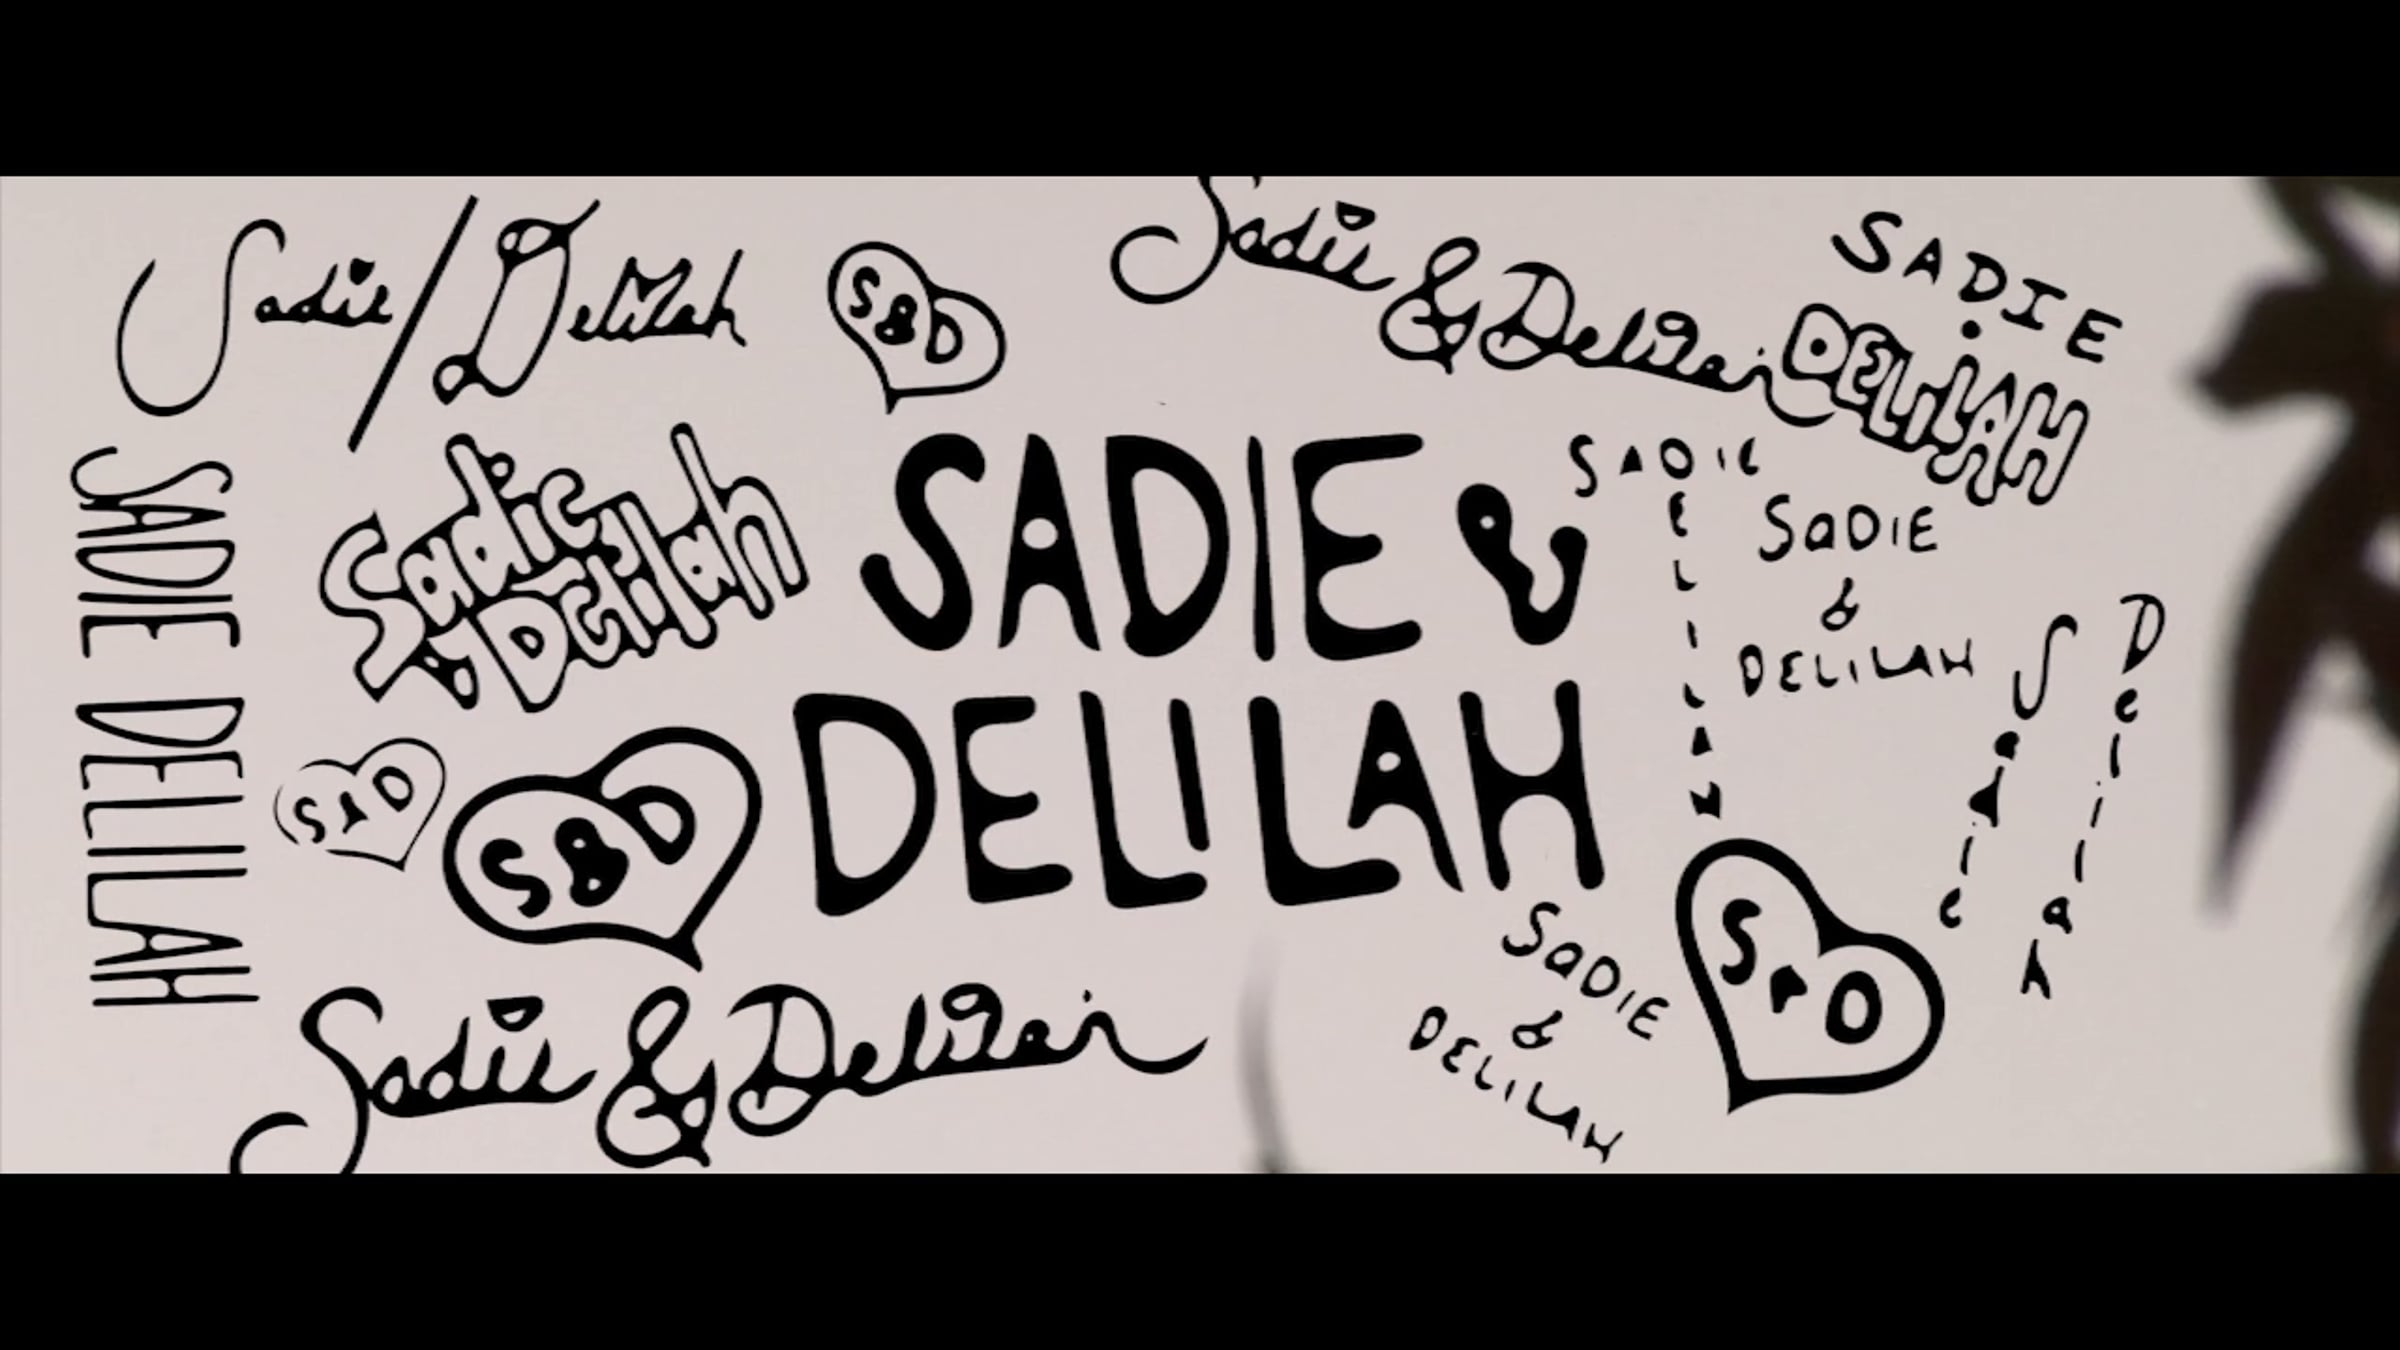 Sadie/Delilah
S&D
Sadie & Delilah
SADIE
DELILAH
SADIE DELILAH
Sadie
& Delilah
SADIE &
DELILAH
SADIE
DELILAH
SADIE
&
DELILAH
Sadie
Delilah
S&D
S&D
SADIE
&
DELILAH
S&D
Sadie & Delilah